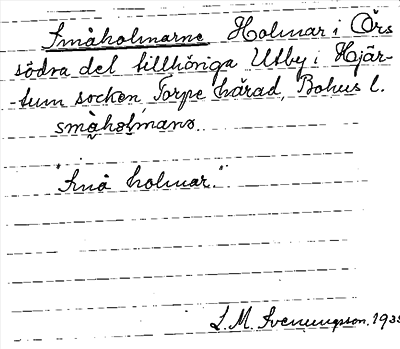 Småholmarne Holmar i Örs
södra del tillhöriga Utby i Hjär-
-tum socken, Torpe härad, Bohus l.
småhɷlmanɷ.
"Små holmar."
L. M. Svenungsson. 193